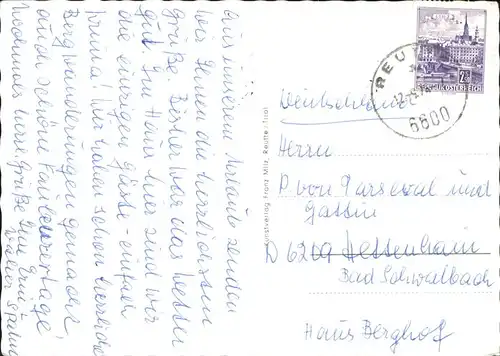 Aus unserem Urlaub senden
wir Ihnen die herzlichsten
Grüße. Bisher war das Wetter
gut. Im Haus hier sind wir
die einzigen Gäste - einfach
prima! Wir haben schon herrliche
Bergwanderungen gemacht
auch schöne
Nochmals Grüße Ihre
REUTTE
6600
2.
REPUBLIK ÖSTERREICH
Kunstverlag Franz Milz, Reutte-Tirol
Deutschland
Herrn
P. von Parseval und
Gattin
D 6209 Hettenhain
Bad Schwalbach
Haus Berghof